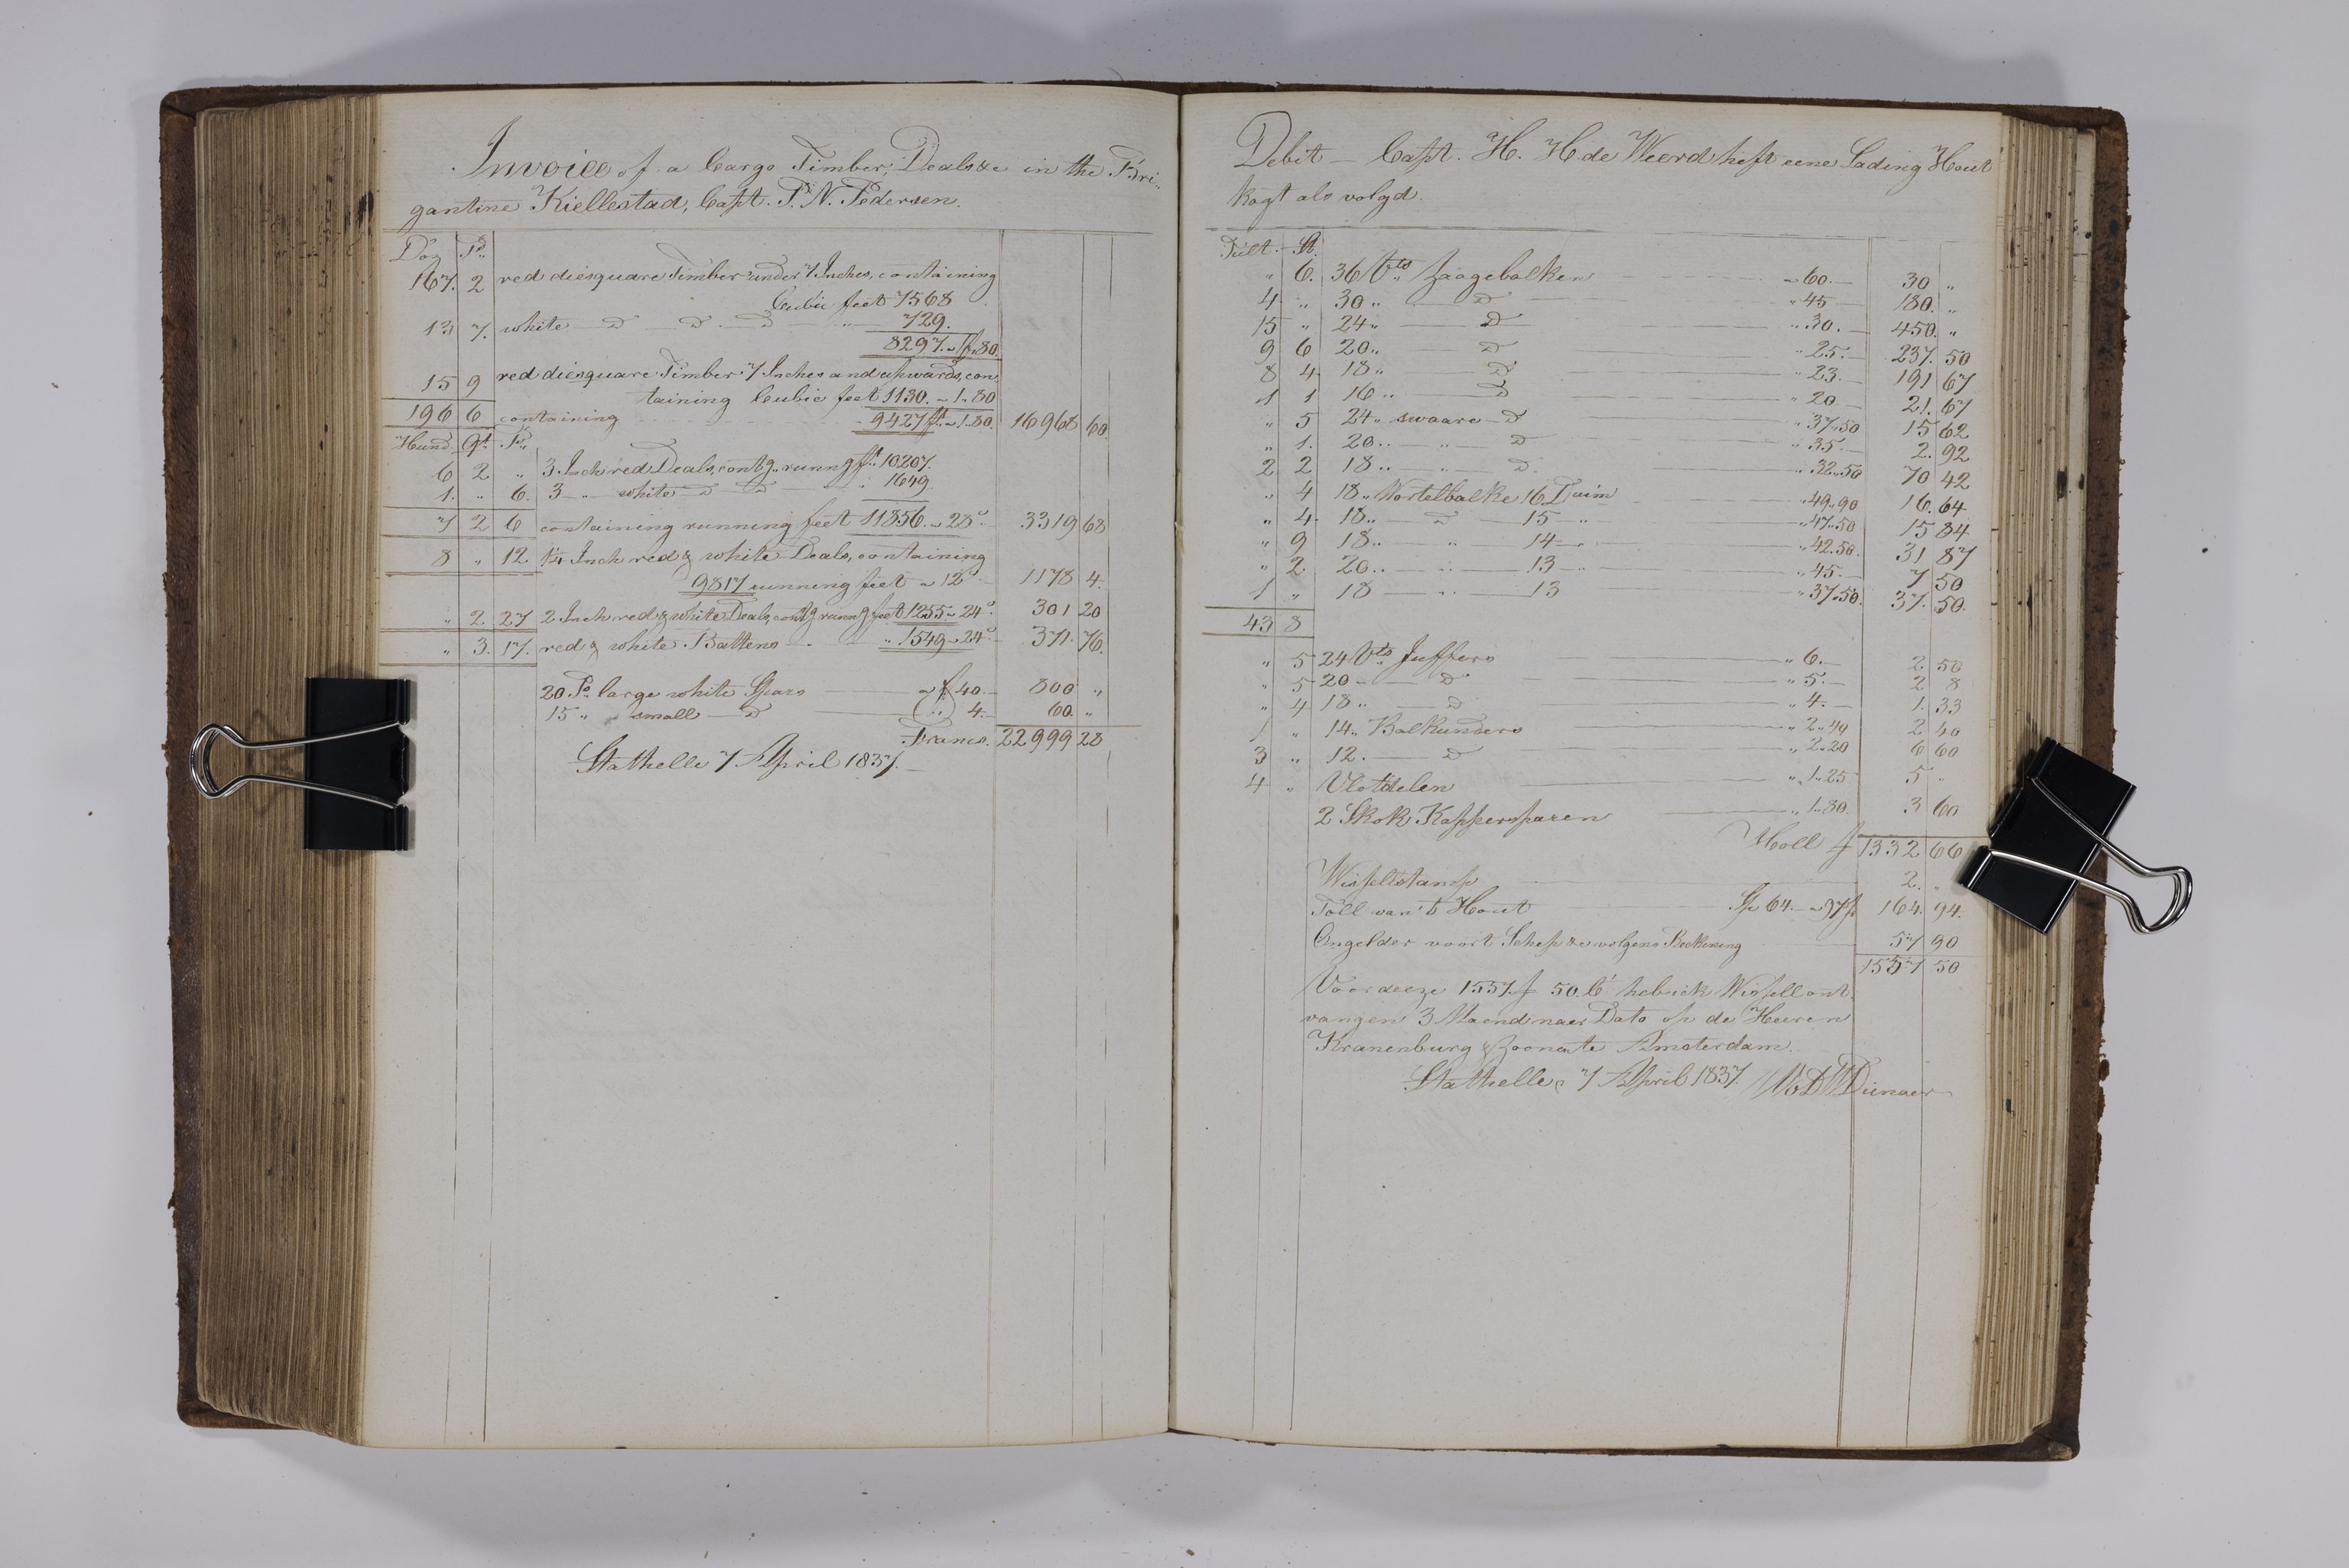 Invoice of a Cargo Timber, Deals &c in the Bri„
gantine Kiellestad, Capt. P. N. Pedersen.
Doz P.s
167. 2 red diesquare Timber under 7 Inches, containing
Cubic feet 7568
13 7. white D D D „ 729.
8297. a f 1„80.
15 9 red diesquare Timber 7 Inches and upwards, con„
taining Cubic feet 1130. a 1„80
196 6 containing 9427 ft. a 1„80. 16968 60
Hund. Qt. P.s
6 2 „ 3 Inch red Deals, contg. runng ft. 10207.
1. „ 6. 3 „ white D D „ 1649
7 2 6 containing running feet 11856. a 28c. 3319 68
8 „ 12. 1¼ Inch red & white Deals, containing
9817 running feet a 12c. 1178 4.
„ 2. 27 2 Inch red & white Deals, contg runng feet 1255 a 24c. 301 20
„ 3. 17. red & white Battens „ 1549 a 24c. 371. 76.
20 Ps large white Spars a f 40. 800 „
15 „ small D „ 4. 60. „
Francs. 22999 28
Stathelle 7 April 1837.
Debit — Capt. H. H. de Weerd heft eene Lading Hout
kogt als volgd.
Tült. St.
„ 6. 36 Vts Zaagebalken a 60. 30 „
4 „ 30 „ D „ 45 180. „
15 „ 24 „ D „ 30. 450. „
9 6 20 „ D „ 25. 237. 50
8 4 18 „ D „ 23. 191 67
1 1 16 „ D „ 20 21. 67
„ 5 24 „ swaare D „ 37„50 15 62
„ 1. 20 „ „ D „ 35. 2. 92
2 2 18 „ „ D „ 32„50 70 42
„ 4 18 „ Wortelbalke 16 Duim „ 49„90 16. 64
„ 4 18 „ D 15 „ „ 47„50 15 84
„ 9 18 „ „ 14 „ „ 42.50. 31 87
„ 2 20 „ „ 13 „ „ 45. 7 50
1 „ 18 „ 13 „ 37„50. 37. 50.
43 8
„ 5 24 Vts Juffers „ 6. 2 50
„ 5 20 D „ 5. 2 8
„ 4 18 „ D „ 4. 1. 33
1 „ 14 „ Balkunders „ 2„40 2 40
3 „ 12. D „ 2„20 6 60
4 „ Vlotdelen „ 1„25 5 „
2 Skok Kappersparen „ 1„80. 3 60
Holl f 1332 66
Wisselstamp 2. „
Toll van't Hout Sp 64. a 97 164. 94.
Ongelder voort Schep &c volgens Reekening 57 90
1557 50
Voor deeze 1557 f 50 C. heb ick Wissell ont„
vangen 3 Maend naer Dato op de Heeren
Kranenburg & Zoonen te Amsterdam.
Stathelle 7 April 1837.